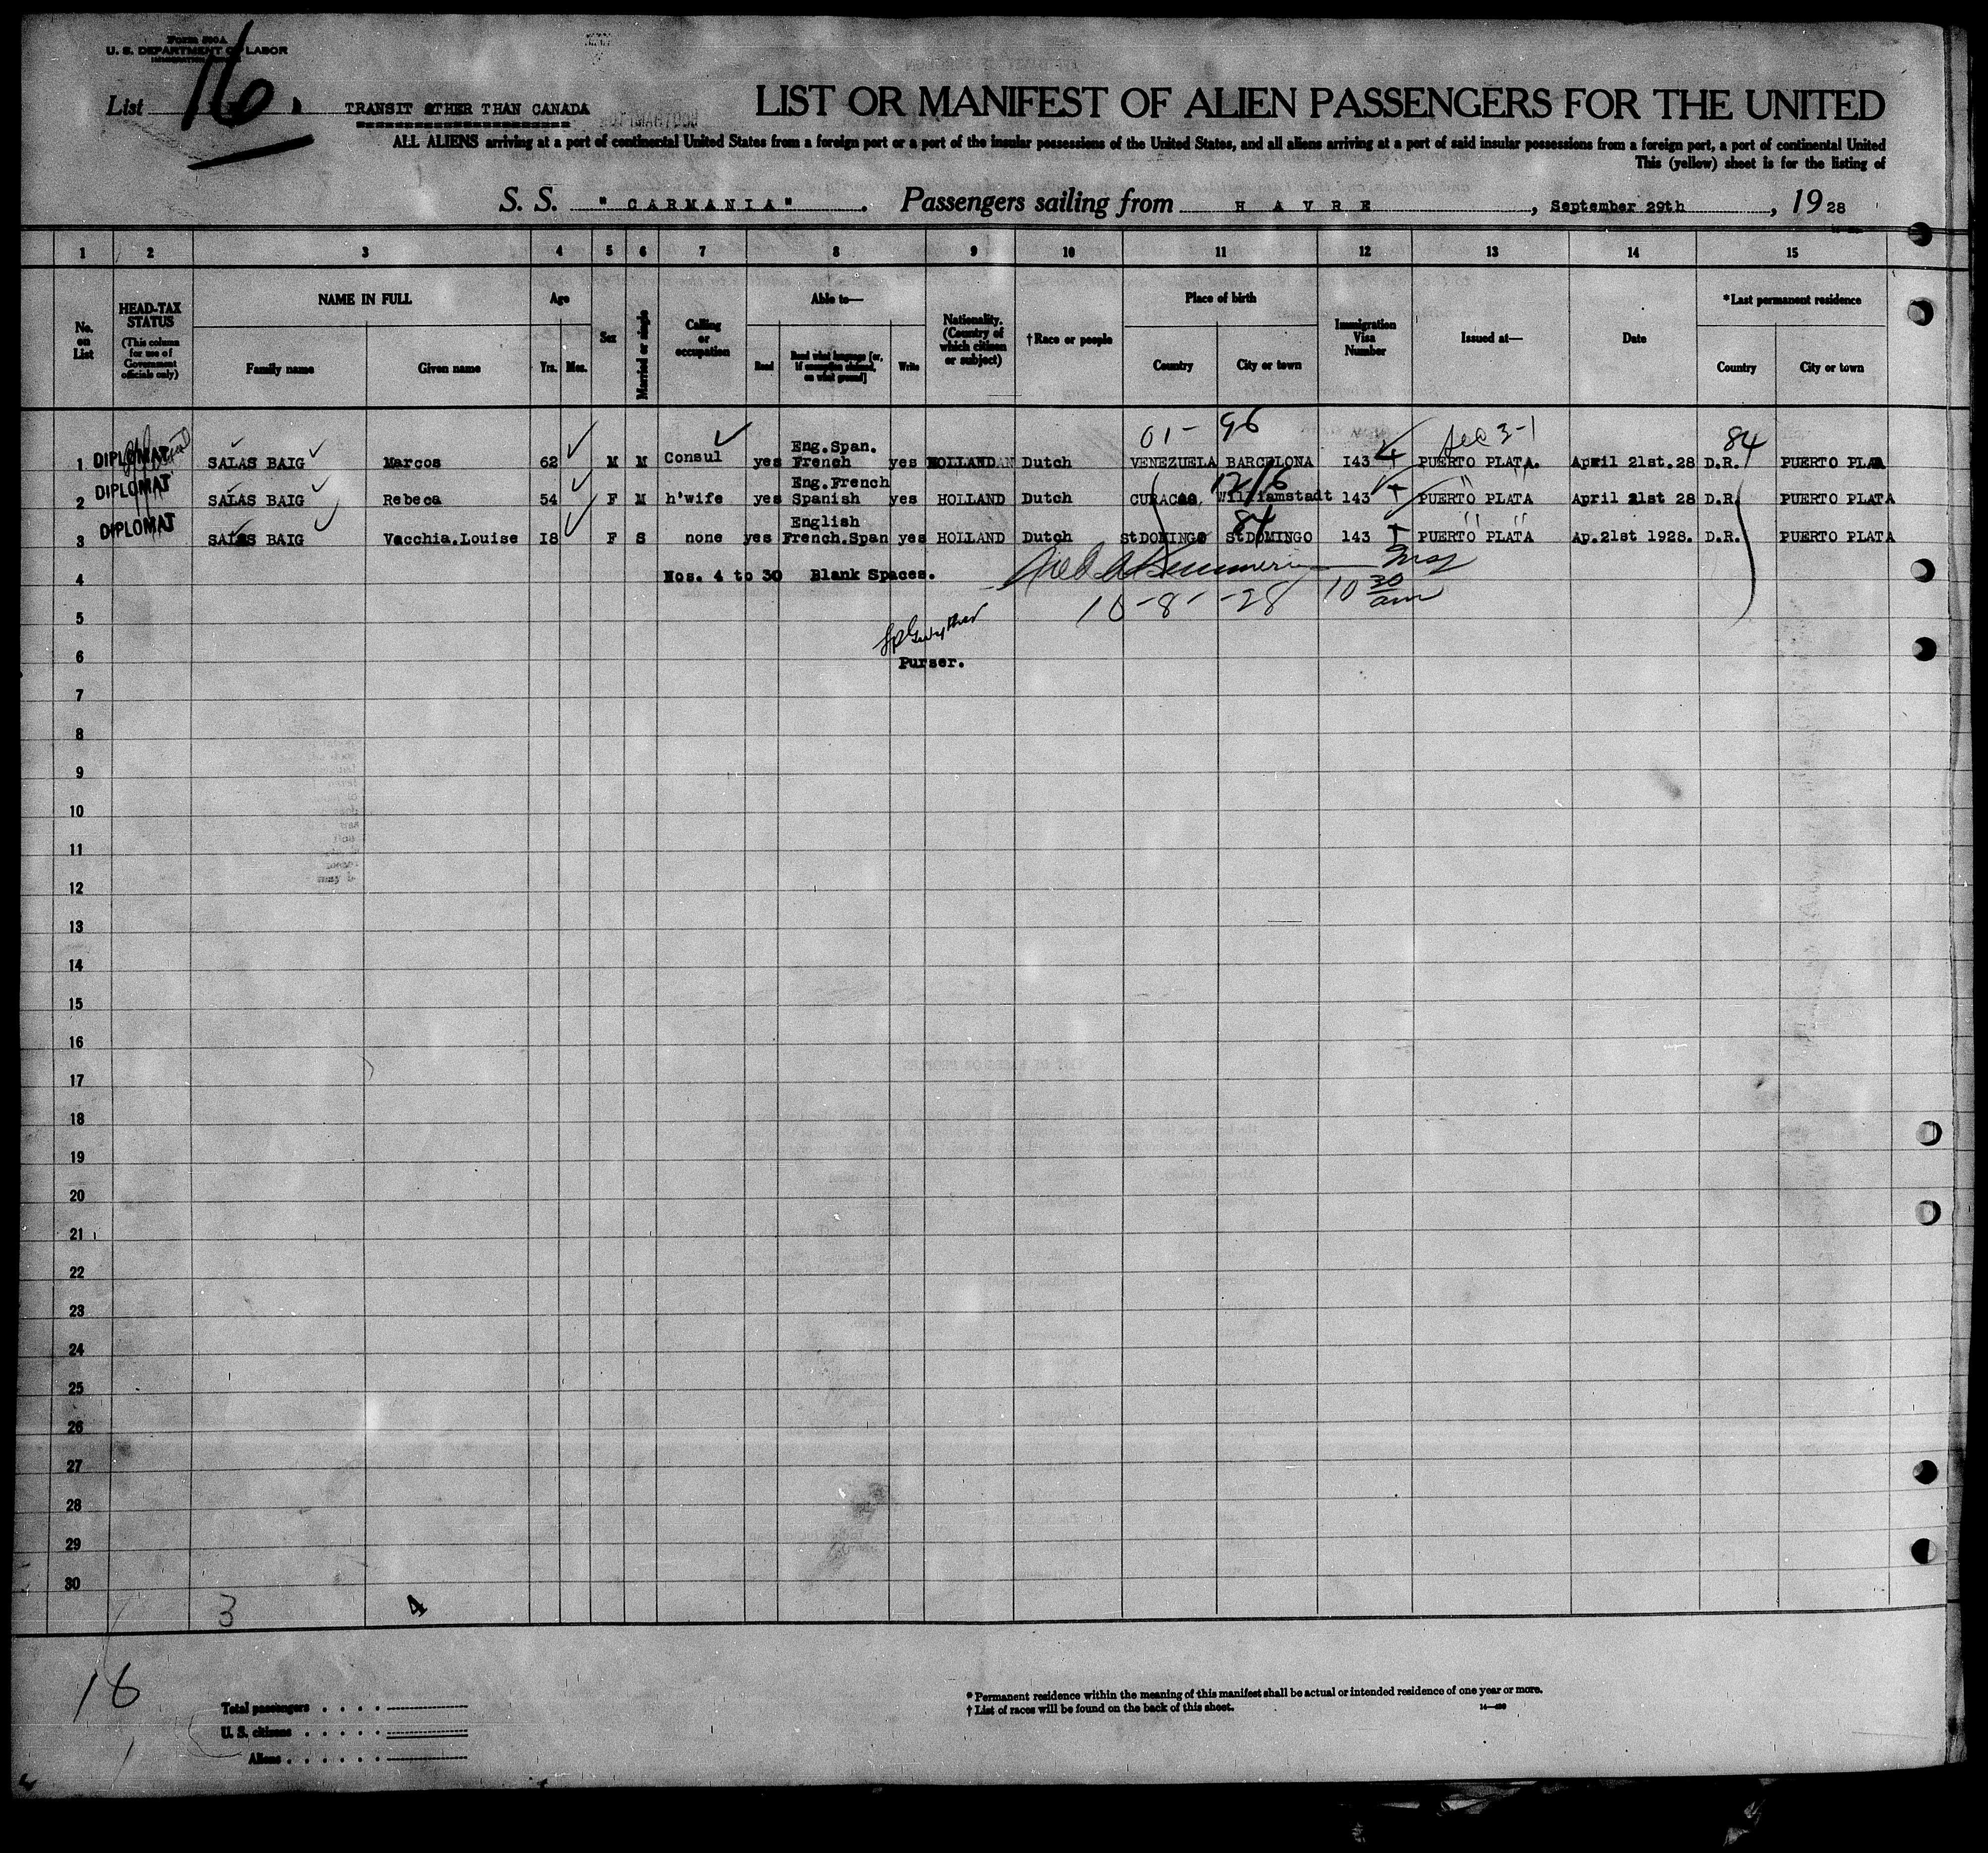 Form 500A
U. S. DEPARTMENT OF LABOR
List 16
TRANSIT OTHER THAN CANADA
LIST OR MANIFEST OF ALIEN PASSENGERS FOR THE UNITED
ALL ALIENS arriving at a port of continental United States from a foreign port or a port of the insular possessions of the United States, and all aliens arriving at a port of said insular possessions from a foreign port, a port of continental United
This (yellow) sheet is for the listing of
S. S. "CARMANIA". Passengers sailing from HAVRE, September 29th, 1928
1 2 3 4 5 6 7 8 9 10 11 12 13 14 15
No. on List
HEAD-TAX STATUS
(This column for use of Government officials only)
NAME IN FULL
Family name Given name
Age
Yrs. Mos.
Sex
Married or single
Calling or occupation
Able to—
Read Read what language [or, if exemption claimed, on what ground] Write
Nationality. (Country of which citizen or subject)
†Race or people
Place of birth
Country City or town
Immigration Visa Number
Issued at—
Date
*Last permanent residence
Country City or town
01- 96 Sec 3-1 84
1 DIPLOMAT SALAS BAIG Marcos 62 M M Consul yes Eng.Span. French yes HOLLAND Dutch VENEZUELA BARCELONA I43 PUERTO PLATA. April 21st.28 D.R. PUERTO PLATA
2 DIPLOMAT SALAS BAIG Rebeca 54 F M h'wife yes Eng.French Spanish yes HOLLAND Dutch CURACAO, Williamstadt 143 PUERTO PLATA April 21st 28 D.R. PUERTO PLATA
84
3 DIPLOMAT SALAS BAIG Vacchia.Louise I8 F S none yes English French.Span yes HOLLAND Dutch stDOMINGO StDOMINGO 143 PUERTO PLATA Ap.21st 1928. D.R. PUERTO PLATA
4 Nos. 4 to 30 Blank Spaces.
10-8-28 10 30 am
5
6
Purser.
7
8
9
10
11
12
13
14
15
16
17
18
19
20
21
22
23
24
25
26
27
28
29
30
3 4
16
Total passengers
U. S. citizens
Aliens
* Permanent residence within the meaning of this manifest shall be actual or intended residence of one year or more.
† List of races will be found on the back of this sheet.